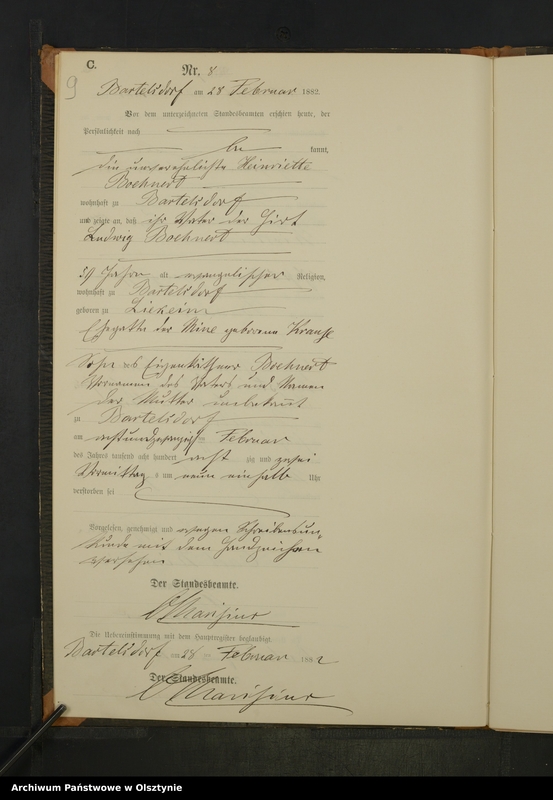 C.
9
Nr. 8
Bartelsdorf am 28 Februar 1882.
Vor dem unterzeichneten Standesbeamten erschien heute, der
Persönlichkeit nach
kannt,
die unverehelichte Heinriette
Boehnert
wohnhaft zu Bartelsdorf
und zeigte an, daß ihr Vater der Hirt
Ludwig Boehnert
Jahre alt, evangelischer Religion,
wohnhaft zu Bartelsdorf
geboren zu Liekeim
Ehegatte der Mine geborene Krause
Sohn des Eigenkäthner Boehnert
Vorname des Vaters und Namen
der Mutter unbekannt
zu Bartelsdorf
am achtundzwanzigsten Februar
des Jahres tausend acht hundert acht zig und zwei
Vormittags um neun einhalb Uhr
verstorben sei
Vorgelesen, genehmigt und wegen Schreibensun-
kunde mit dem Handzeichen
versehen
Der Standesbeamte.
Die Uebereinstimmung mit dem Hauptregister beglaubigt.
Bartelsdorf am 28 ten Februar 1882
Der Standesbeamte.
Archiwum Państwowe w Olsztynie